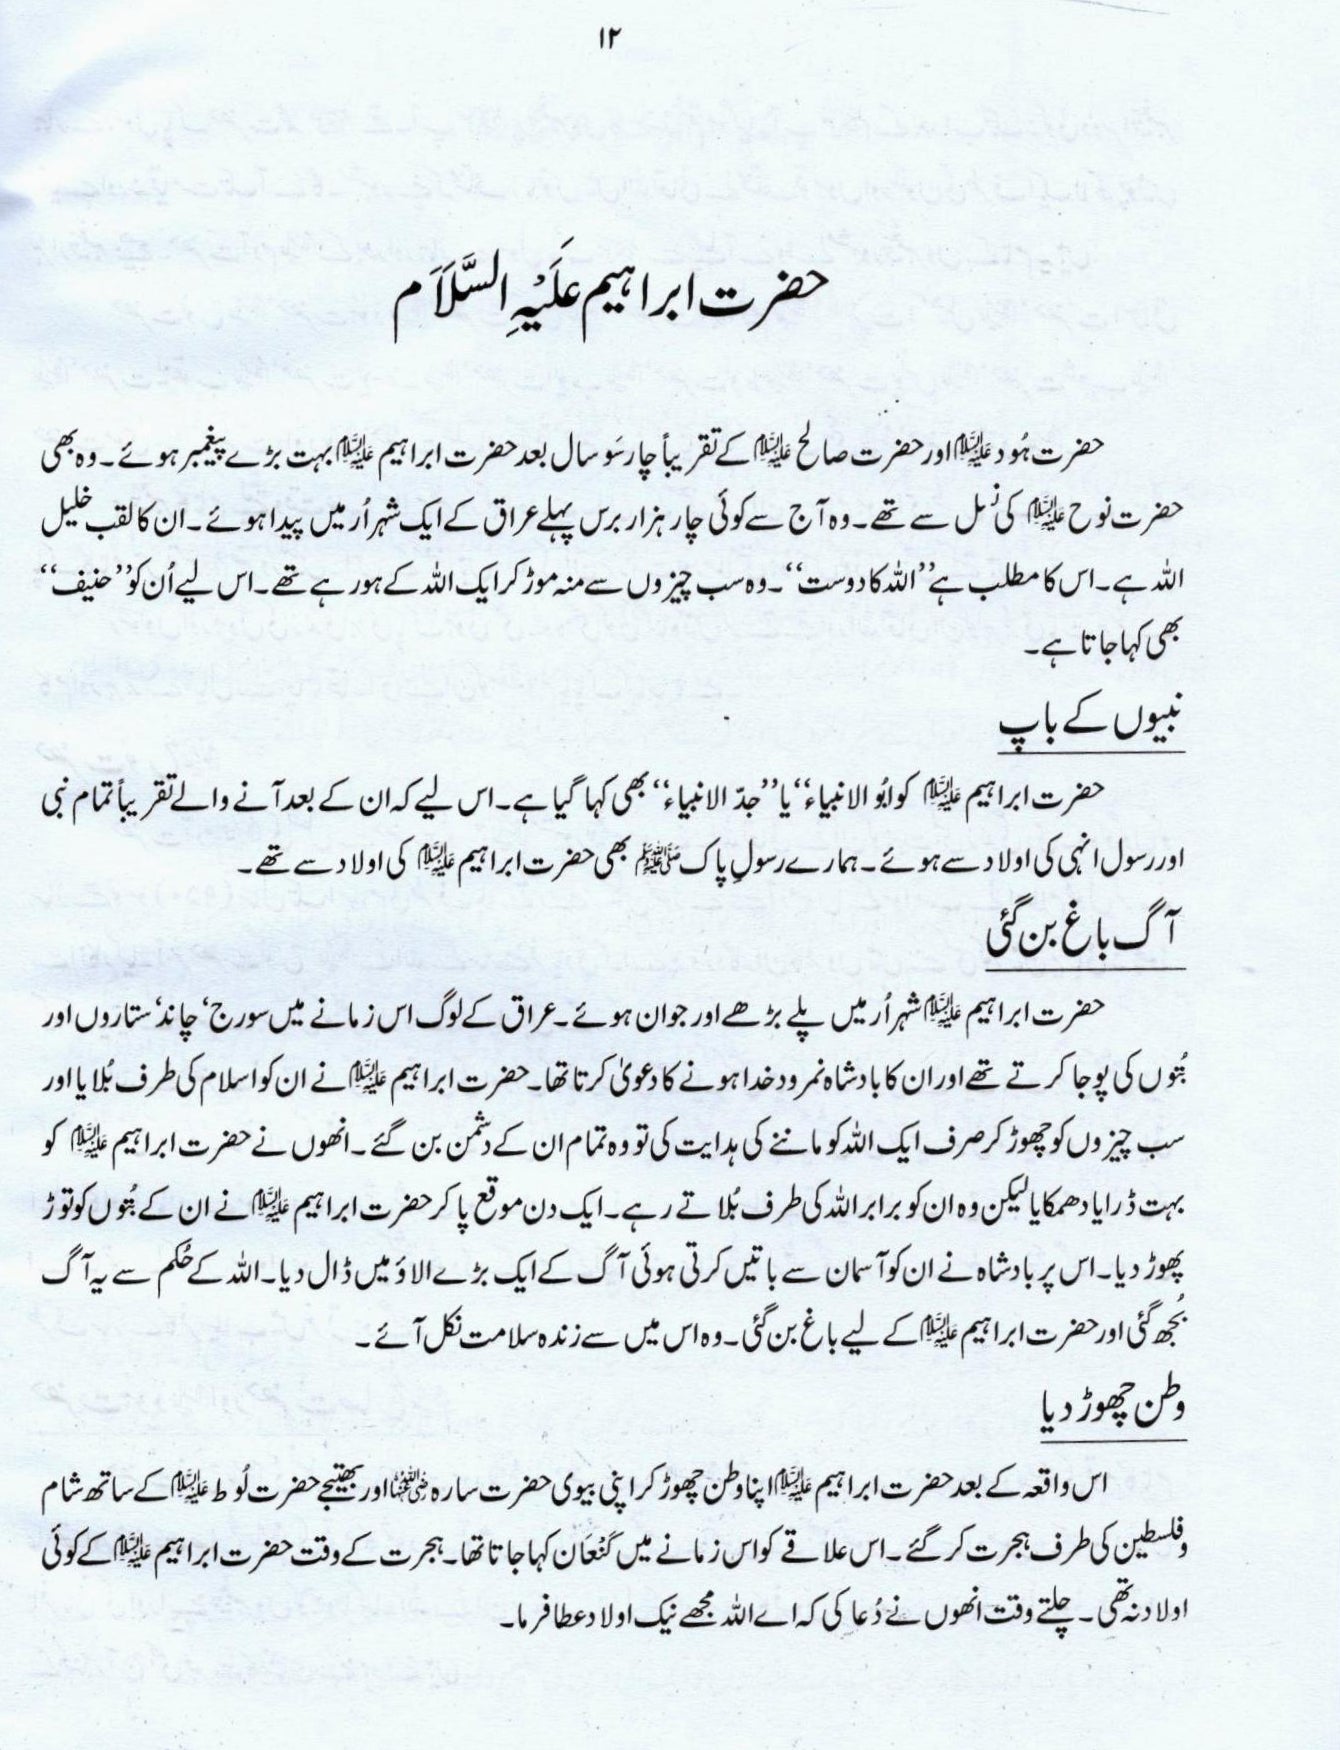 ۱۲
حضرت ابراہیم عَلَیْہِ السَّلَام
حضرت ہُود علیہ السلام اور حضرت صالح علیہ السلام کے تقریباً چار سَو سال بعد حضرت ابراہیم علیہ السلام بہت بڑے پیغمبر ہوئے۔ وہ بھی
حضرت نوح علیہ السلام کی نسل سے تھے۔ وہ آج سے کوئی چار ہزار برس پہلے عراق کے ایک شہر اُر میں پیدا ہوئے۔ ان کا لقب خلیل
اللہ ہے۔ اس کا مطلب ہے ’’اللہ کا دوست‘‘۔ وہ سب چیزوں سے منہ موڑ کر ایک اللہ کے ہو رہے تھے۔ اس لیے اُن کو ’’حنیف‘‘
بھی کہا جاتا ہے۔
نبیوں کے باپ
حضرت ابراہیم علیہ السلام کو ابُو الانبیاء‘‘ یا ’’جدّ الانبیاء‘‘ بھی کہا گیا ہے۔ اس لیے کہ ان کے بعد آنے والے تقریباً تمام نبی
اور رسول انہی کی اولاد سے ہوئے۔ ہمارے رسولِ پاک ﷺ بھی حضرت ابراہیم علیہ السلام کی اولاد سے تھے۔
آگ باغ بن گئی
حضرت ابراہیم علیہ السلام شہر اُر میں پلے بڑھے اور جوان ہوئے۔ عراق کے لوگ اس زمانے میں سورج‘ چاند‘ ستاروں اور
بُتوں کی پوجا کرتے تھے اور ان کا بادشاہ نمرود خدا ہونے کا دعویٰ کرتا تھا۔ حضرت ابراہیم علیہ السلام نے ان کو اسلام کی طرف بُلایا اور
سب چیزوں کو چھوڑ کر صرف ایک اللہ کو ماننے کی ہدایت کی تو وہ تمام ان کے دشمن بن گئے۔ انھوں نے حضرت ابراہیم علیہ السلام کو
بہت ڈرایا دھمکایا لیکن وہ ان کو برابر اللہ کی طرف بُلاتے رہے۔ ایک دن موقع پا کر حضرت ابراہیم علیہ السلام نے ان کے بُتوں کو توڑ
پھوڑ دیا۔ اس پر بادشاہ نے ان کو آسمان سے باتیں کرتی ہوئی آگ کے ایک بڑے الاؤ میں ڈال دیا۔ اللہ کے حُکم سے یہ آگ
بُجھ گئی اور حضرت ابراہیم علیہ السلام کے لیے باغ بن گئی۔ وہ اس میں سے زندہ سلامت نکل آئے۔
وطن چھوڑ دیا
اس واقعہ کے بعد حضرت ابراہیم علیہ السلام اپنا وطن چھوڑ کر اپنی بیوی حضرت سارہ رضی اللہ عنہا اور بھتیجے حضرت لُوط علیہ السلام کے ساتھ شام
و فلسطین کی طرف ہجرت کر گئے۔ اس علاقے کو اس زمانے میں کَنْعَان کہا جاتا تھا۔ ہجرت کے وقت حضرت ابراہیم علیہ السلام کے کوئی
اولاد نہ تھی۔ چلتے وقت انھوں نے دُعا کی کہ اے اللہ مجھے نیک اولاد عطا فرما۔